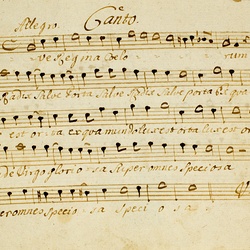 Allegro. Canto.
ve Regina Coelo rum
radix Salve porta Salve Radix Salve porta Ex qua
est orta ex qua mundo lux est orta lux est or
de Virgo glorio sa Super omnes speciosa
per omnes specio sa speci o sa